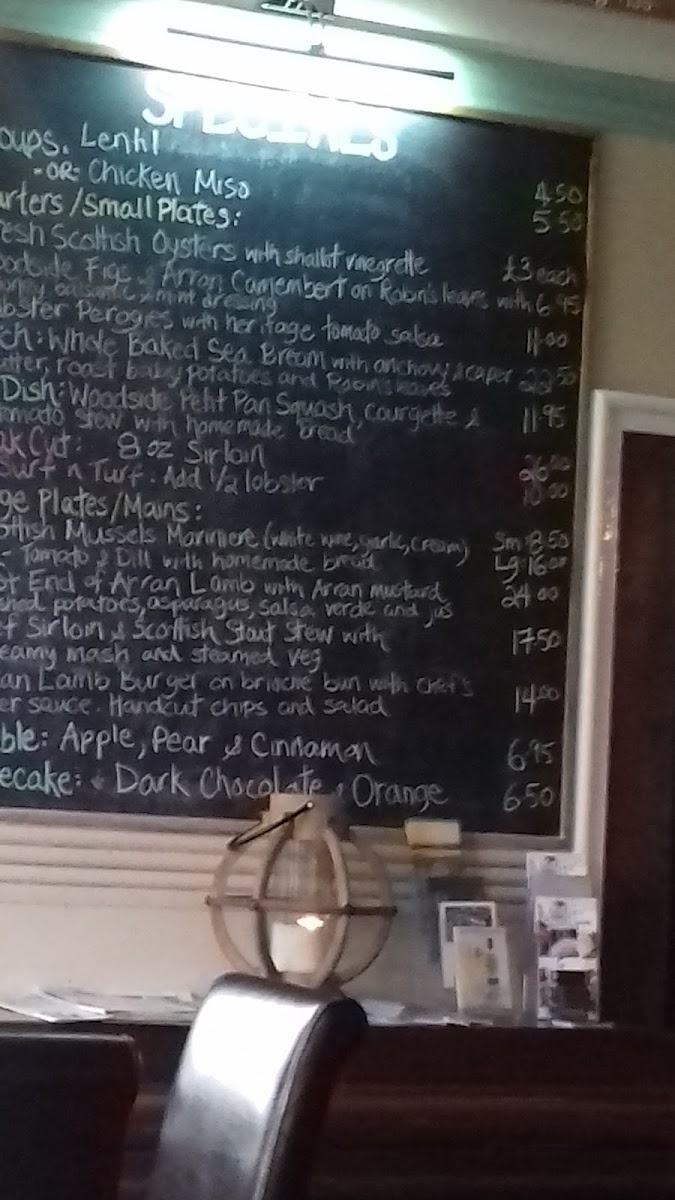 SPECIALS
oups. Lentil
-OR- Chicken Miso 4.50
arters/Small Plates: 5.50
esh Scottish Oysters with shallot vinegrette £3 each
oodside Figs & Arran Camembert on Robin's leaves with 6.95
oney balsamic & mint dressing
obster Perogies with heritage tomato salsa 11.00
ch: Whole Baked Sea Bream with anchovy & caper 22.50
utter, roast baby potatoes and Robin's leaves
Dish: Woodside Petit Pan Squash, courgette & 11.95
omato stew with homemade bread
ak Cut: 8 oz Sirloin 26.00
Surf n Turf: Add 1/2 lobster 10.00
ge Plates/Mains:
ottish Mussels Mariniere (white wine, garlic, cream) Sm 8.50
- Tomato & Dill with homemade bread Lg 16.00
st End of Arran Lamb with Arran mustard 24.00
shed potatoes, asparagus, salsa verde and jus
ef Sirloin & Scottish Stout Stew with 17.50
eamy mash and steamed veg
an Lamb Burger on brioche bun with chef's 14.00
er sauce. Handcut chips and salad
ble: Apple, Pear & Cinnamon 6.95
ecake: Dark Chocolate & Orange 6.50